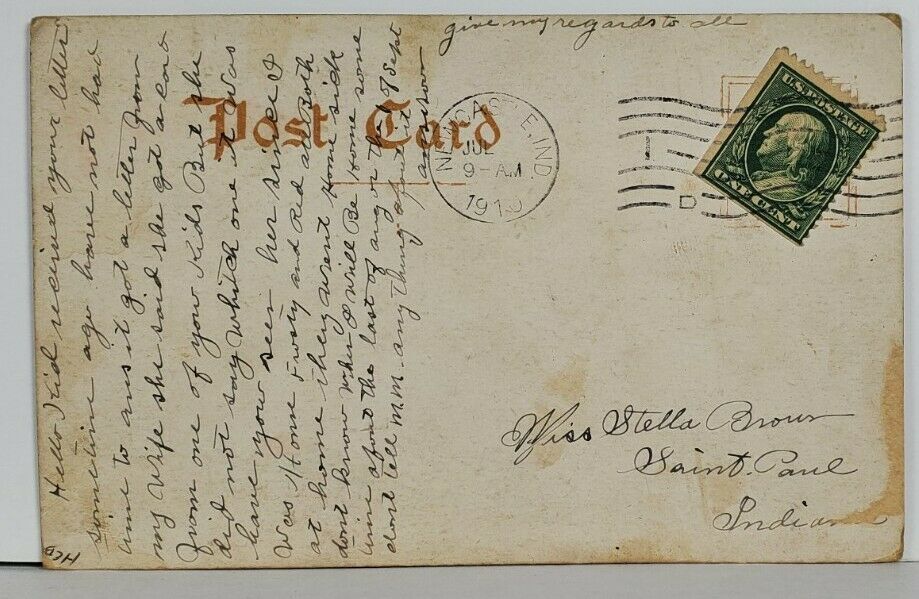 give my regards to all
Post Card
NEWCASTLE, IND
JUL
9-AM
1910
D
U.S. POSTAGE
1 CENT 1
Hello Kid received your letter
sometime ago have not had
time to ans it got a letter from
my wife she said she got a card
from one of your kids But she
did not say which one it was
have you seen her since I
was Home and Red all Both
at home they went Home sick
dont know when I will Be Home some
time about the last of aug or the 1 of Sept
dont tell M.M. anything about it
ans soon
Miss Stella Brown
Saint. Paul
Indiana